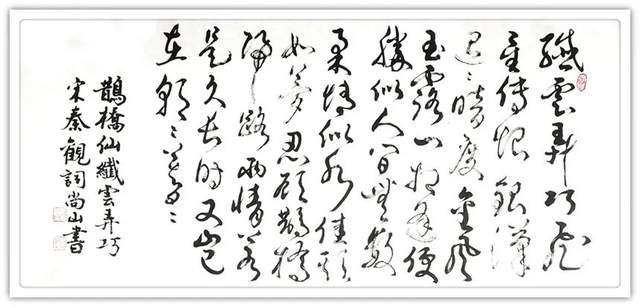 纖雲弄巧飛
星傳恨銀漢
迢〻暗度金風
玉露一相逢便
勝似人間無數
柔情似水佳期
如夢忍顧鵲橋
歸路兩情若
是久長時又豈
在朝〻暮〻
鵲橋仙纖雲弄巧
宋秦觀詞尚山書